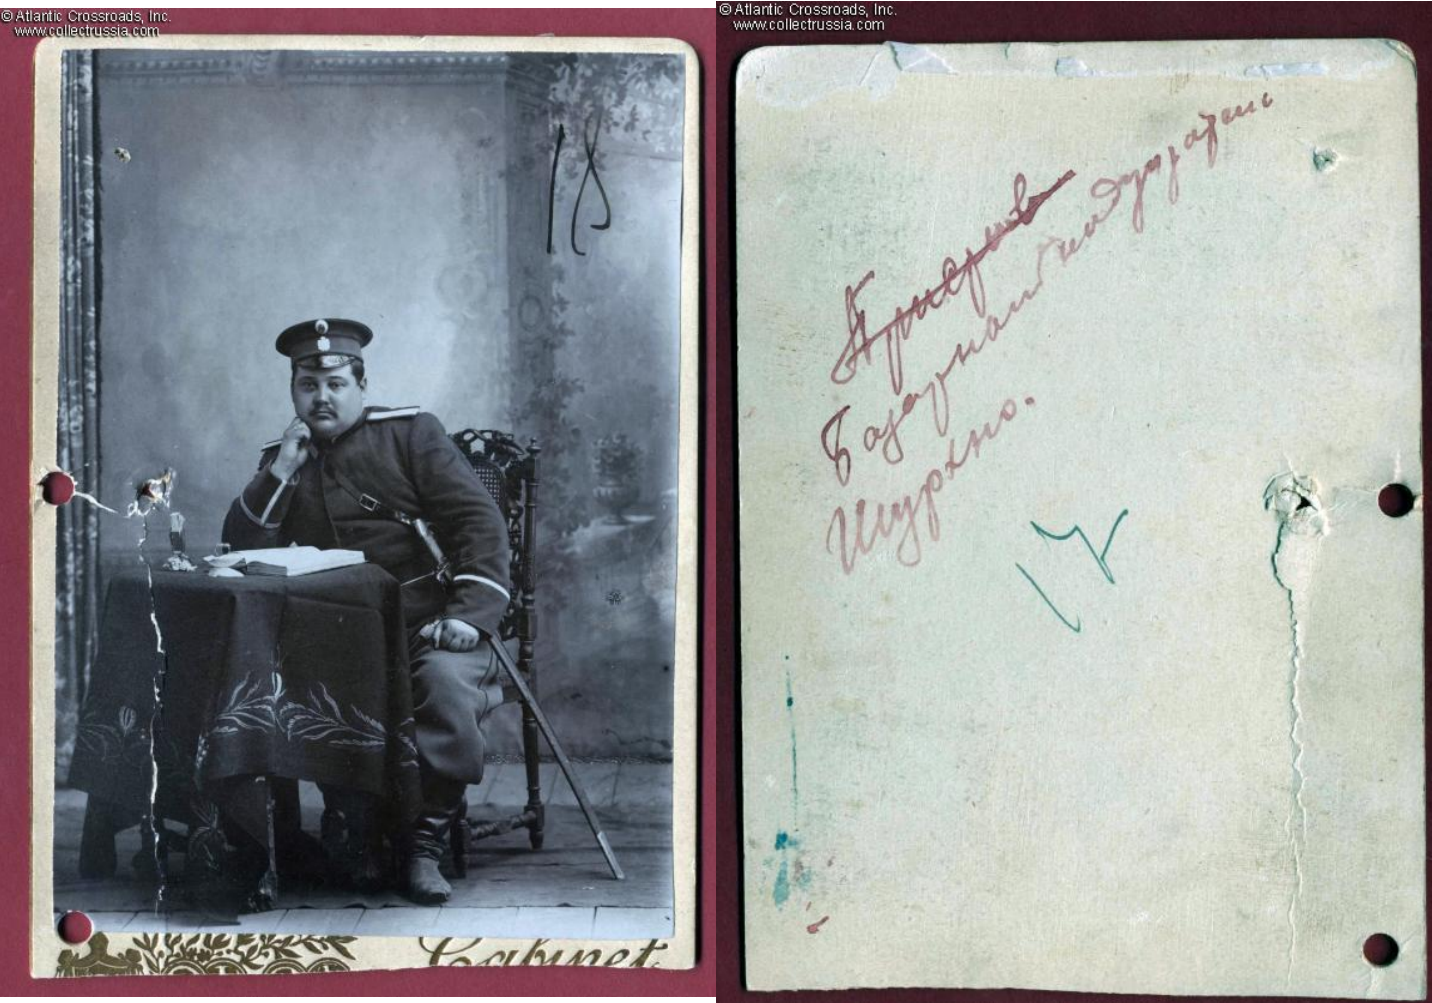 © Atlantic Crossroads, Inc.
www.collectrussia.com
18
Cabinet
© Atlantic Crossroads, Inc.
www.collectrussia.com
Базарный
Шурхно.
17